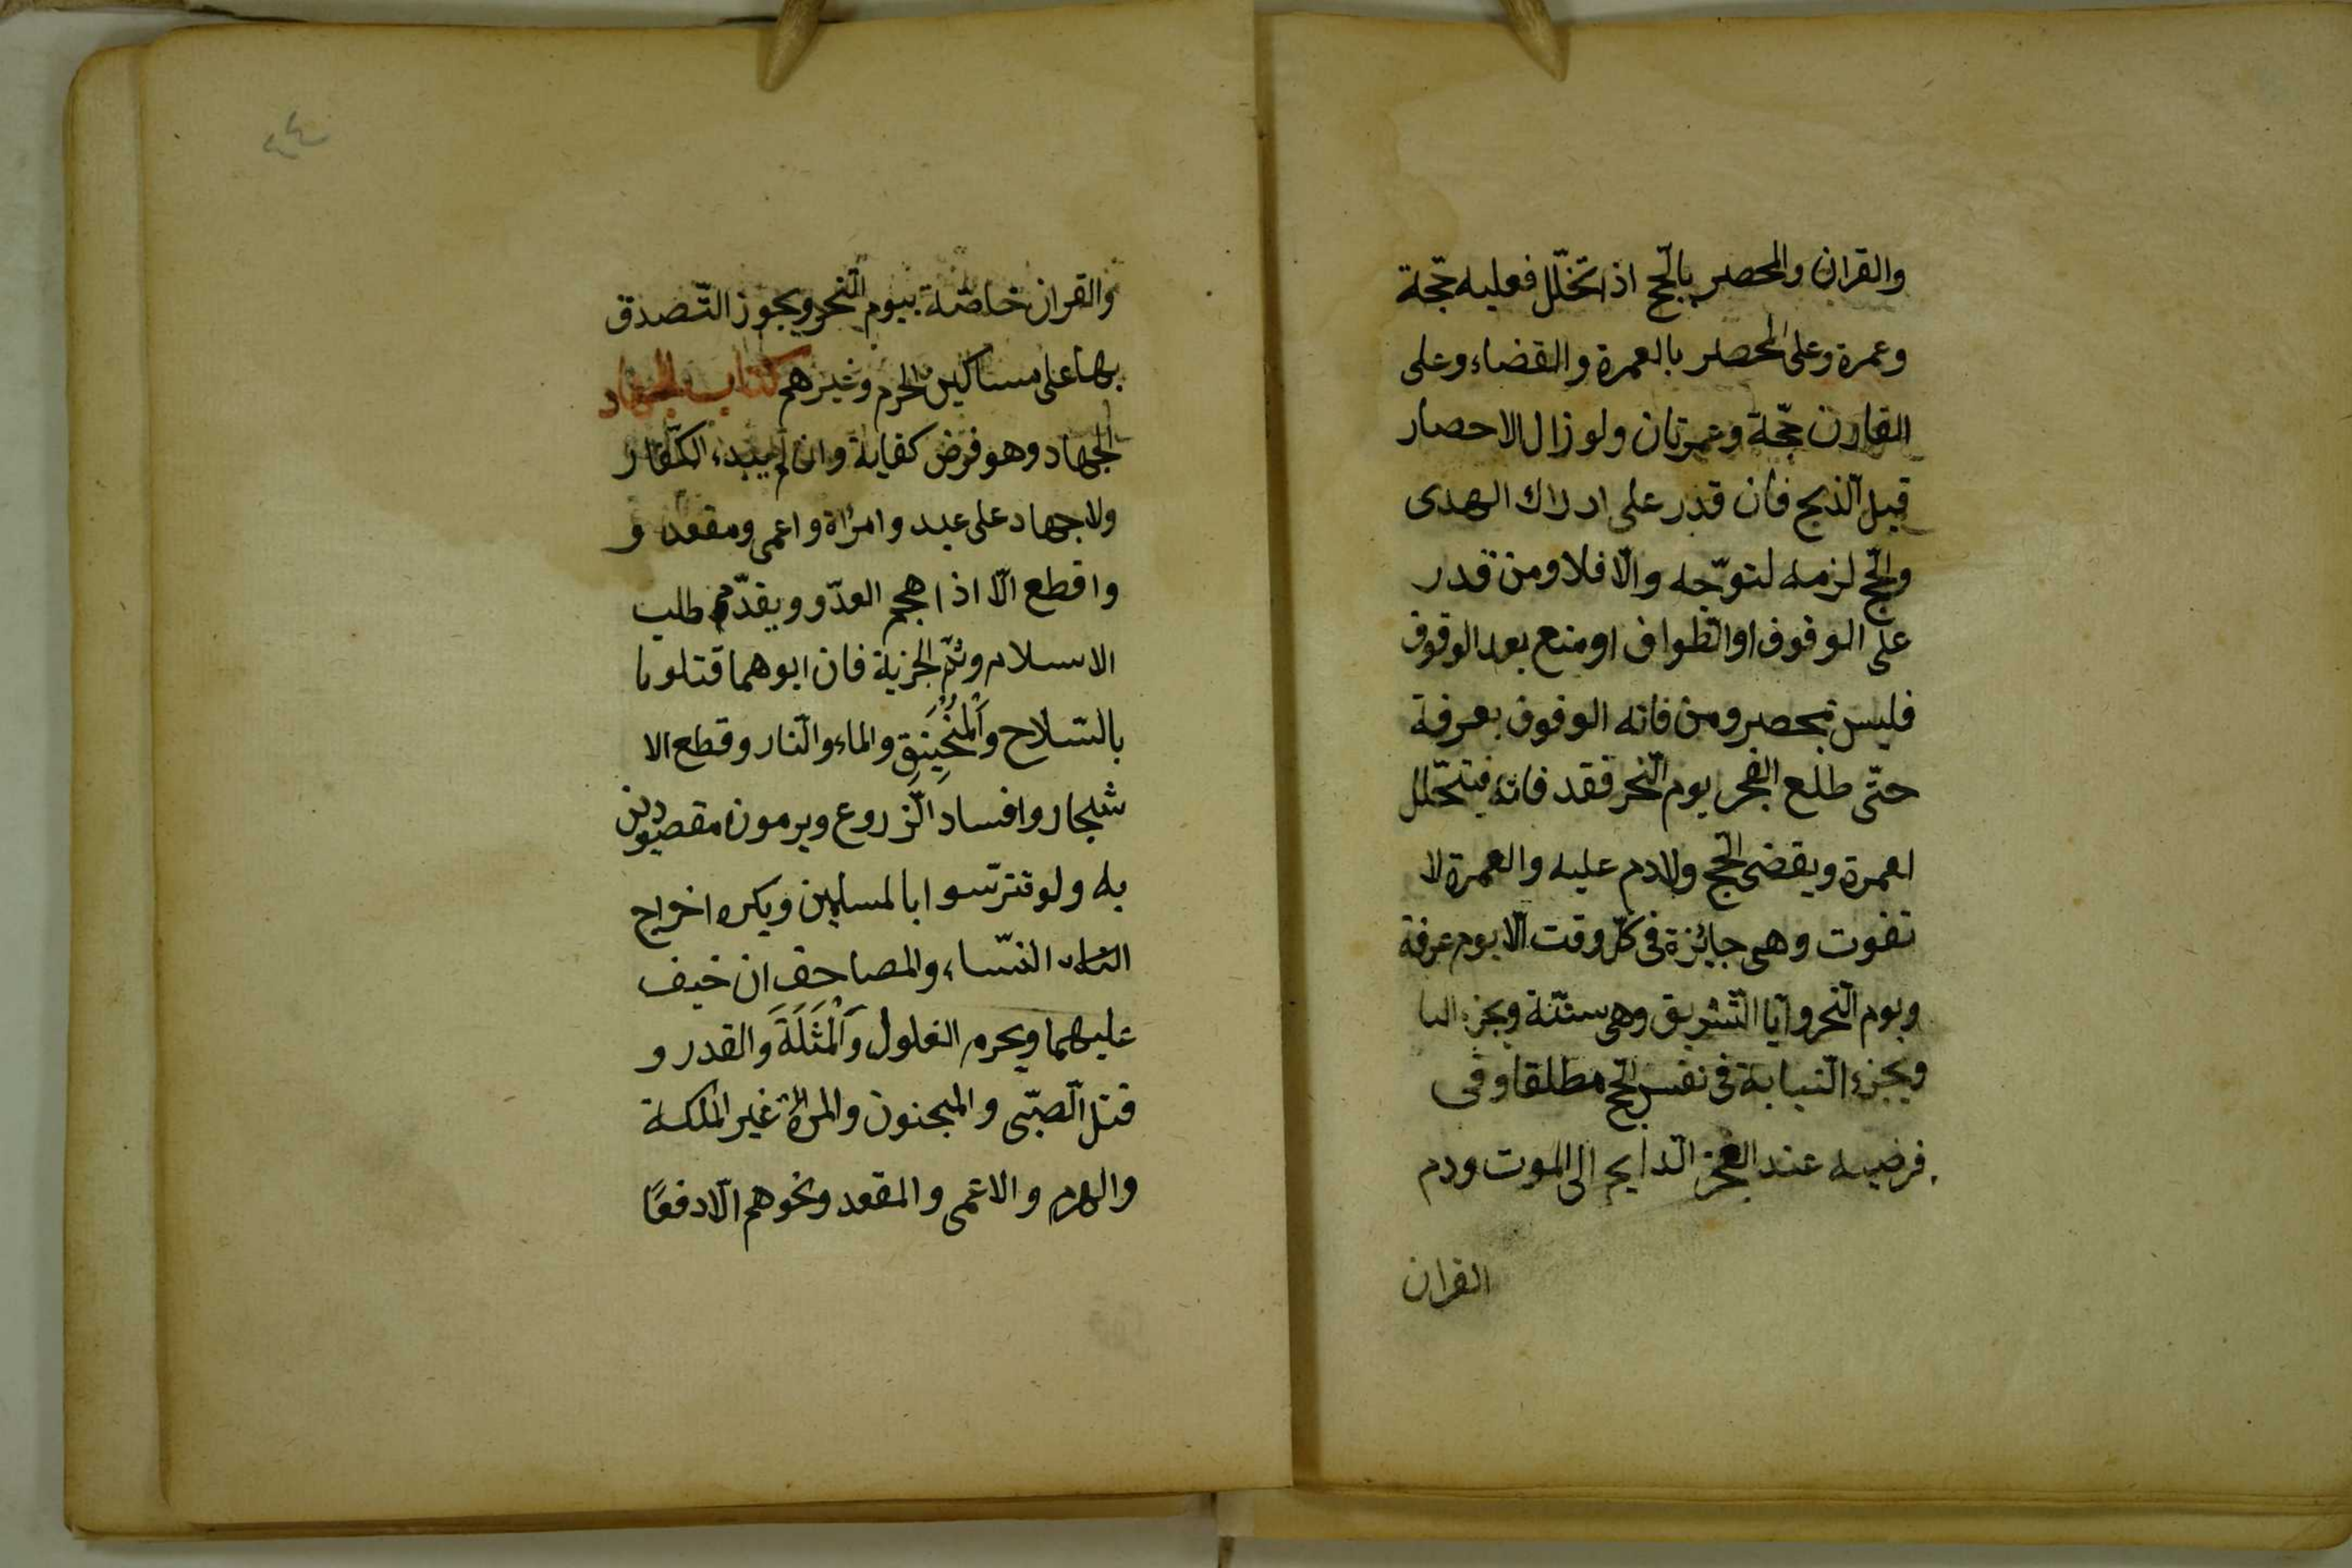 والقران والمحصر بالحّج اذا تحّلل فعليه حّجة
وعمرة وعلى المحصر بالعمرة والقضاء وعلى
القارن حّجة وعمرتان ولو زال الاحصار
قبل الّذبح فان قدر على ادراك الهدى
والحّج لزمه لتوّجه والّا فلا ومن قدر
على الوقوف او الّطواف او منع بعد الوقوف
فليس بمحصر ومن فاته الوقوف بعرفة
حتّى طلع الفجر يوم الّنحر فقد فاته فيتحّلل
لعمرة ويقضى الحّج ولا دم عليه والعمرة لا
تفوت وهى جائزة فى كّل وقت الّا يوم عرفة
ويوم الّنحر واّيا الّتشريق وهى سنّة ويجزء
ويجزء الّنيابة فى نفس الحّج مطلقا وفى
فرضيه عند العجز الّدايم الى الموت ودم
القران
والقران خاصّة بيوم الّنحر ويجوز التّصدق
بها على مساكين الحرم وغيرهم كتاب الجهاد
الجهاد وهو فرض كفاية وان لم يبدء الكفّار
ولا جهاد على عبد وامرأة واعمى ومقعد و
واقطع الّا اذا هجم العدّو ويقدّم طلب
الاسلام وثّم الجزية فان ابوهما قتلوا
بالسّلاح وَاْلمَنْجَنِيَقِ والماء والّنار وقطع الا
شجار وافساد الّزروع ويرمون مقصودين
به ولو تترّسوا بالمسلمين ويكره اخراج
النّساء والمصاحف ان خيف
عليهما ويحرم الغلول وَاْلمَثَلَةَ والقدر و
قتل الّصبّى والمجنون والمرأة غير الملكة
والهرم والاعمى والمقعد ونحوهم الّا دفعًا